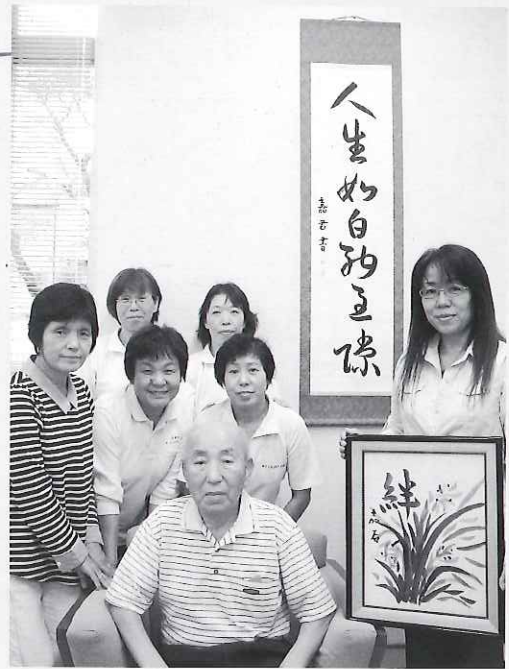 人生如白駒過隙
書
絆